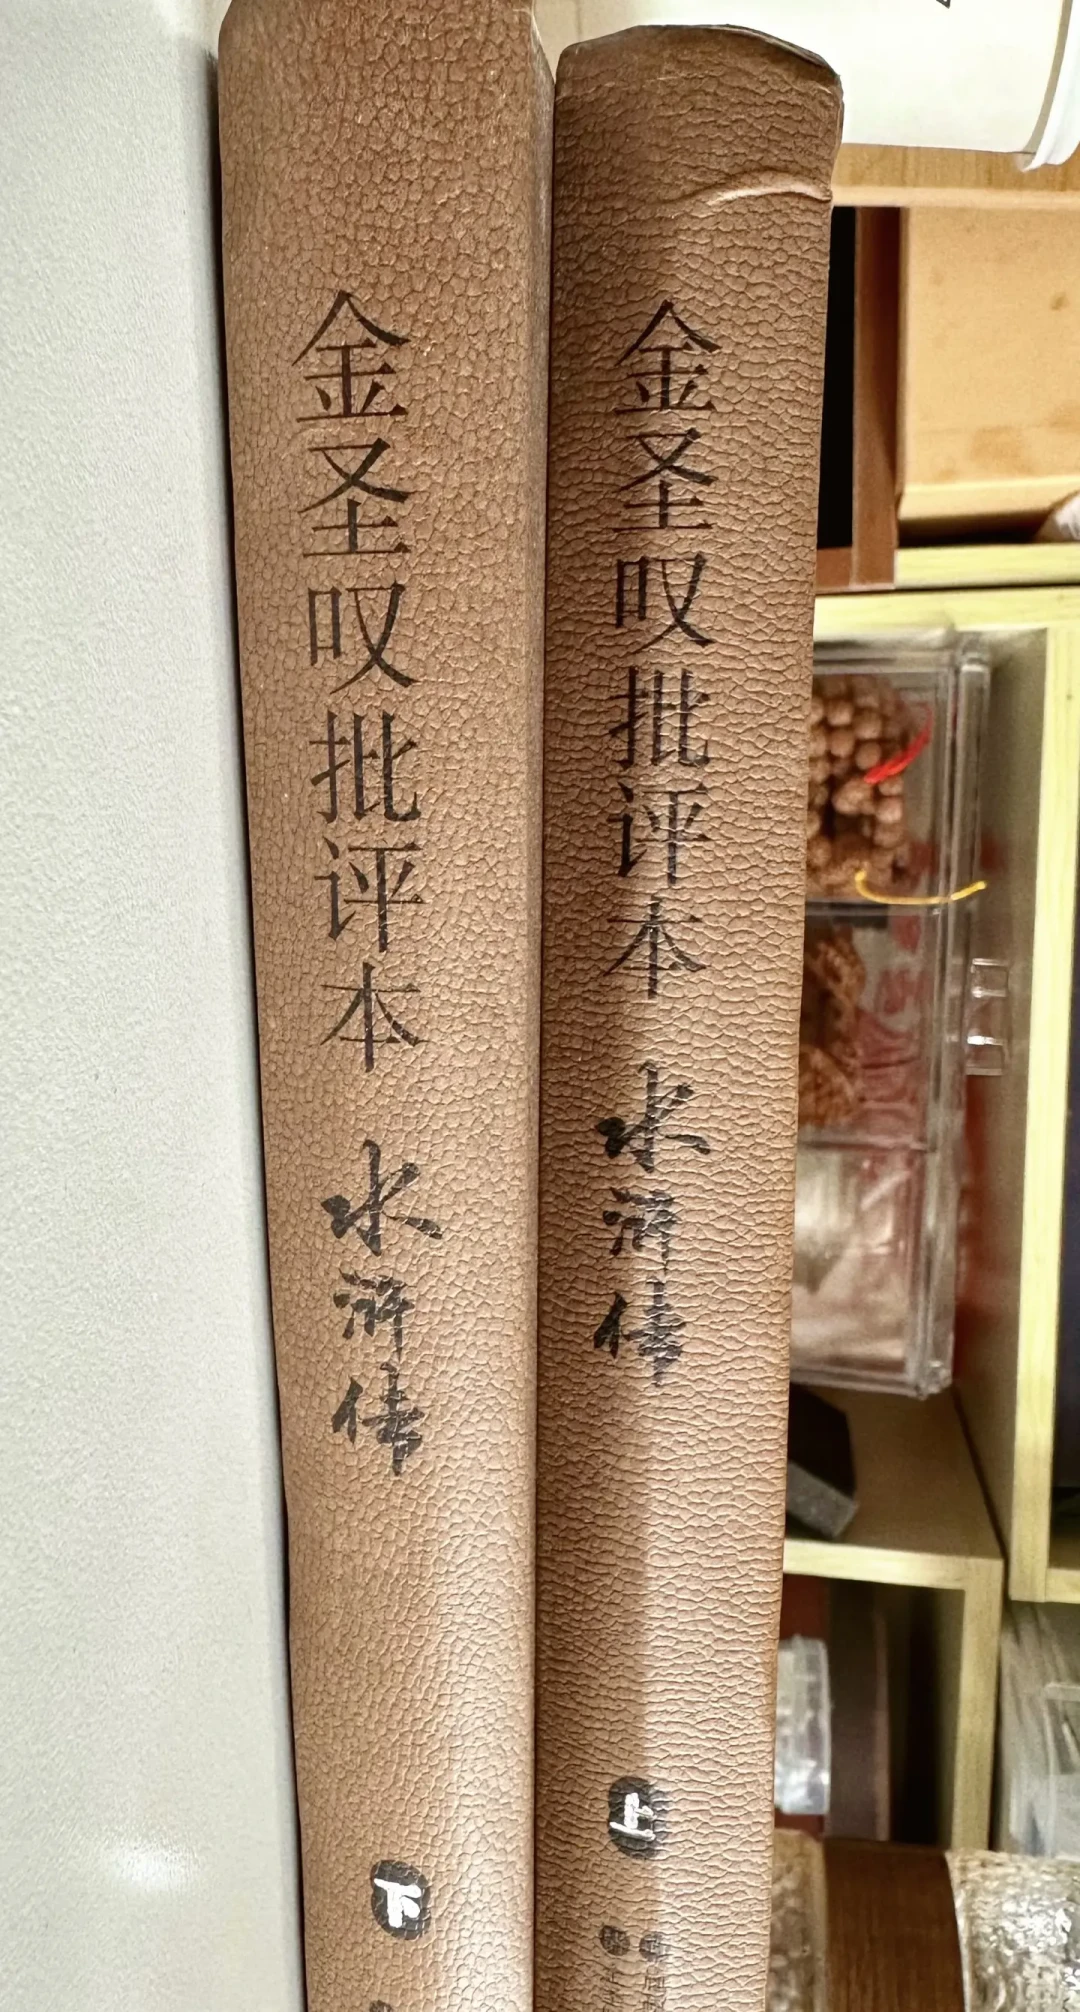 金圣叹批评本 水浒传 下
金圣叹批评本 水浒传 上